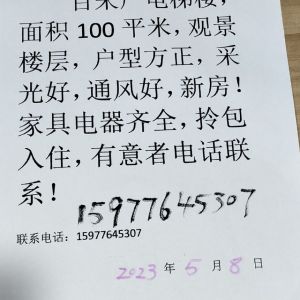 百米），电梯楼，
面积 100 平米，观景
楼层，户型方正，采
光好，通风好，新房！
家具电器齐全，拎包
入住，有意者电话联
系！
15977645307
联系电话：15977645307
2023 年 5 月 8 日